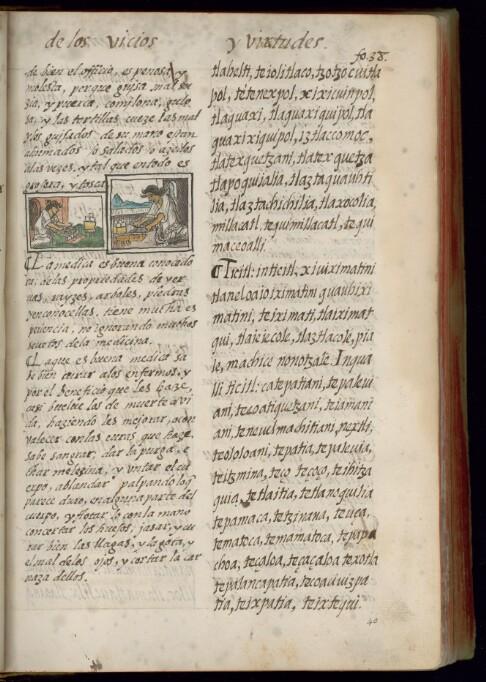 de los vicios y virtudes.
fo. 38.
de bien el officio, es penosa, y
molesta, porque guisa mal
zia, y puerca, comilona, golo
sa, y las tortillas cueze las mal
y los guisados de su mano estan
ahumados o salados o azedos
alas vezes, y tal que en todo es
grosera, y tosca.
¶ La medica es buena conocedo
ra, delas propriedades de yer
uas, rayzes, arboles, piedras
y en conocellas, tiene mucha es
periencia, no ignorando muchos
secretos de la medicina.
¶ La que es buena medica sa
be bien curar alos enfermos, y
por el beneficio que les haze,
casi buelue los de muerte a vi
da, haziendo les mejorar, o con
valecer con las curas que haze,
sabe sangrar, dar la purga, e
char melezina, y vntar el cu
erpo, ablandar palpando lo q̃
parece duro, en alguna parte del
cuerpo, y flotar lo con la mano
concertar los huesos, jasar, y cu
rar bien las llagas, y la gota, y
el mal de los ojos, y cortar la car
naza dellos.
tlabelti, teiolitlaco, tzotzocuitla
pol, tetenexpol, xixicuinpol,
tlaquaxi, tlaquaxiquipol, tla
quaxixiquipol, iztlaccomoc,
tlatexquetzani, tlatexquetza
tlapoquialia, tlaztaquauhti
lia, tlaztachichilia, tlaxocolia,
millacatl, tequimillacatl, tequi
maceoalli.
¶ Ticitl: in ticitl, xiuiximatini
tlaneloaioiximatini quauhixi
matini, teiximati, tlaiximat
qui, tlaieiecole, tlaztlacole, pia
le, machice nonotzale. In qua
lli ticitl: ca tepatiani, tepaleui
ani, tecoatiquetzani, teiamani
ani, teneuelmachitiani, nextli,
teololoani, tepatia, tepaleuia,
teitzmina, teço teçoço, teihitza
quia, tetlaitia, tetlanoquilia
tepamaca, tetzinana, teueca,
temateca, temamateca, tepapa
choa, teçaloa, teçaçaloa texotla
tepalancapatia, tecoaciuizpa
tia, teixpatia, teixtequi.
40